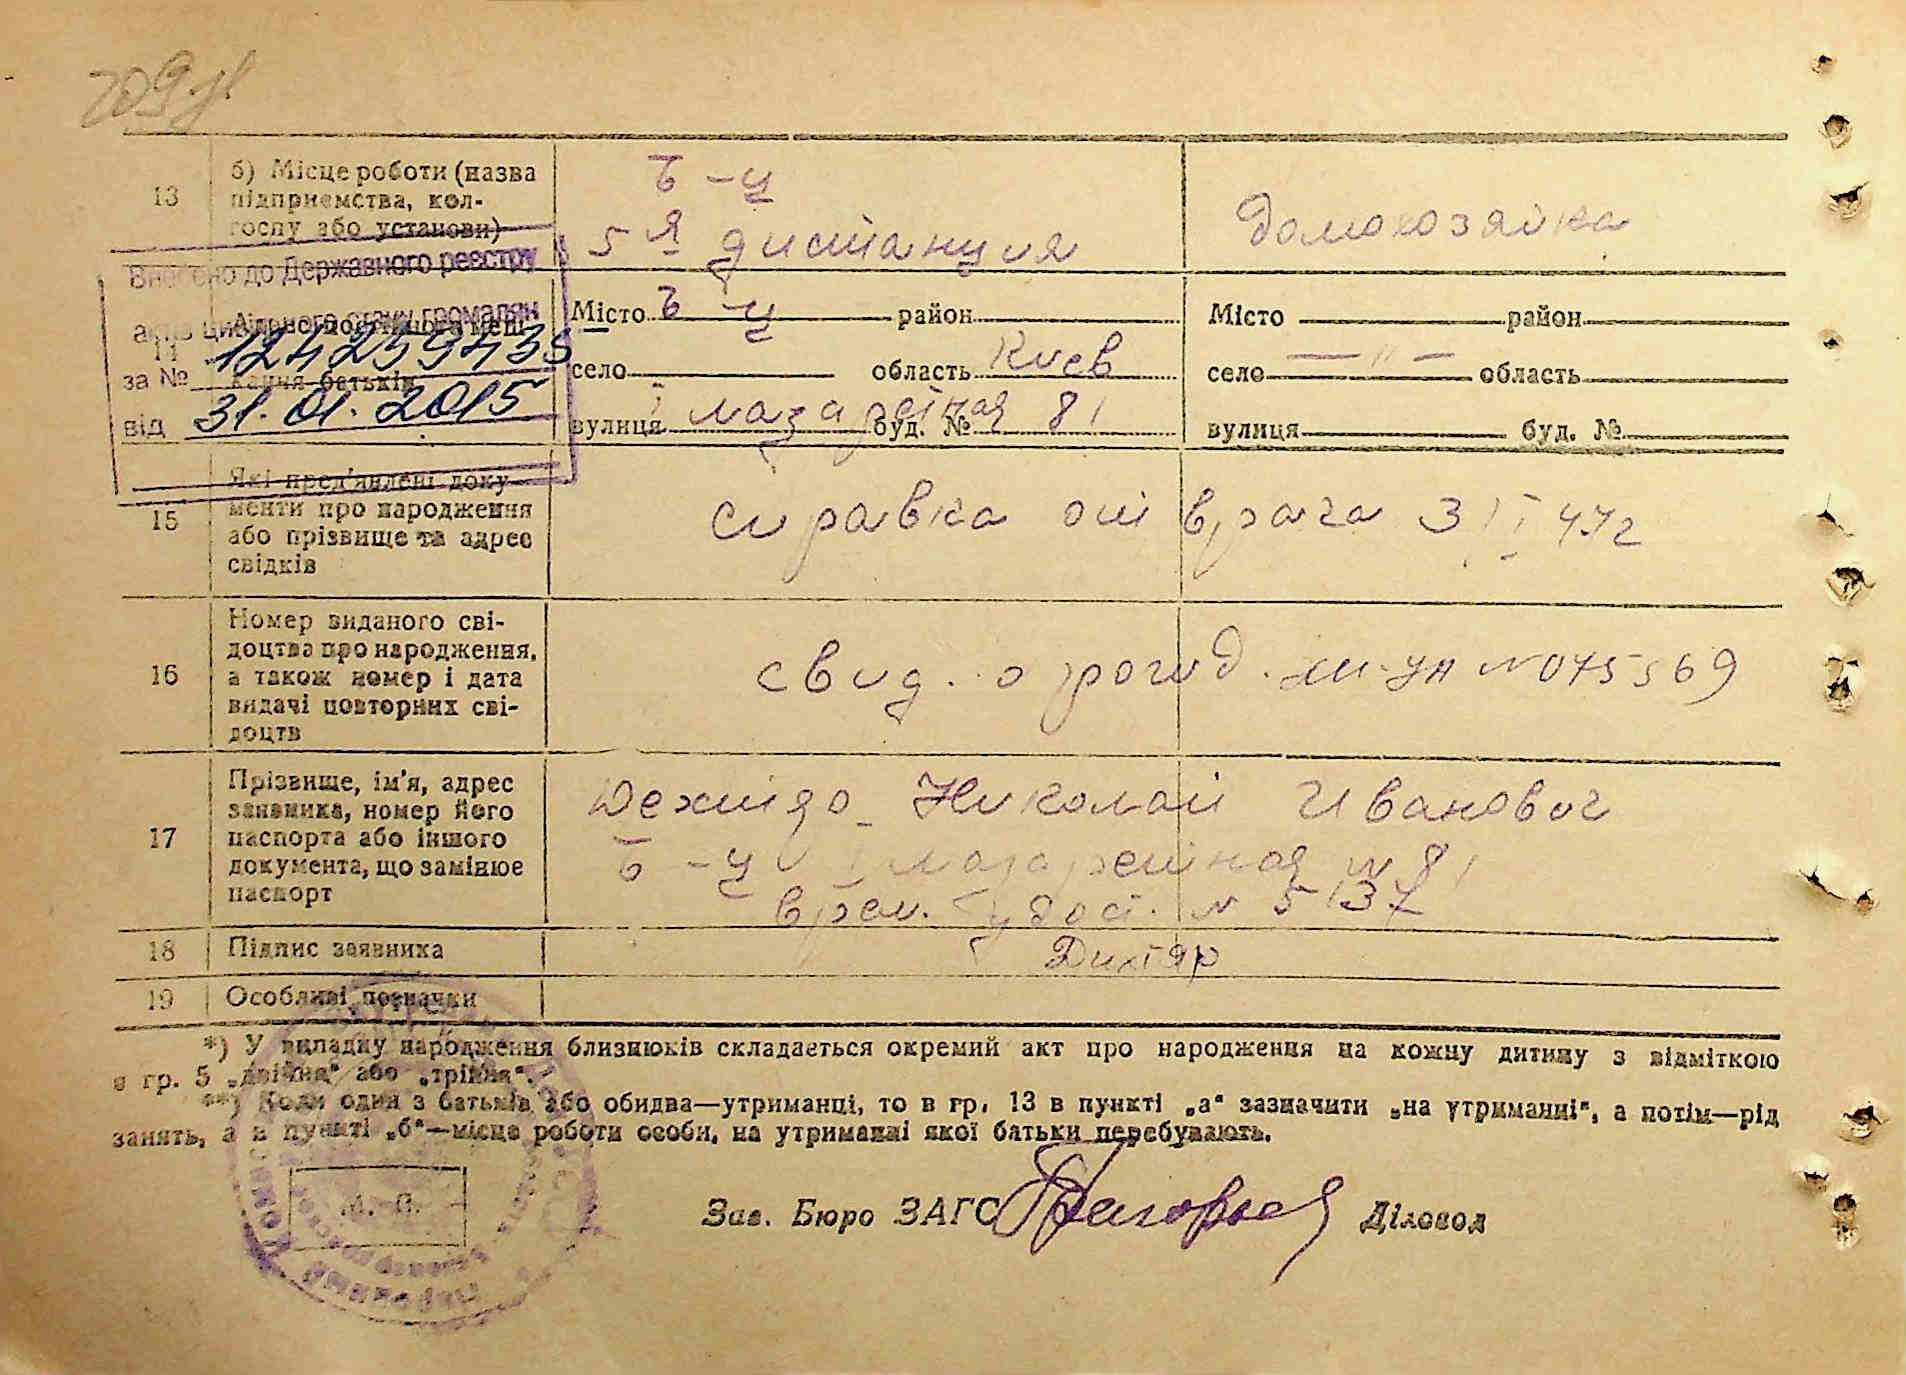 13
б) Місце роботи (назва
підприємства, кол-
госпу або установи)
Б-ц
5я дистанция
Домохозяйка
Внесено до Державного реєстру
актів цивільного стану громадян
за № 12425943
від 31.01.2015
14
постійного меш-
кання батьків
Місто Б-ц район
село область Киев
вулиця Лазаретная буд. № 81
Місто район
село — " — область
вулиця буд. №
15
Які пред'явлені доку-
менти про народження
або прізвище та адрес
свідків
справка от врача 3
16
Номер виданого сві-
доцтва про народження,
а також номер і дата
видачі повторних сві-
доцтв
свид. о рожд. № 075569
17
Прізвище, ім'я, адрес
заявника, номер його
паспорта або іншого
документа, що замінює
паспорт
Николай Иванович
Б-ц Лазаретная № 81
врем. удост. № 5137
18
Підпис заявника
Дихтяр
19
Особливі позначки
*) У випадку народження близнюків складається окремий акт про народження на кожну дитину з відміткою
в гр. 5 „двійня“ або „трійня“.
**) Коли один з батьків або обидва—утриманці, то в гр. 13 в пункті „а“ зазначити „на утриманні“, а потім—рід
занять, а в пункті „б“—місце роботи особи, на утриманні якої батьки перебувають.
М. П.
Зав. Бюро ЗАГС
Діловод